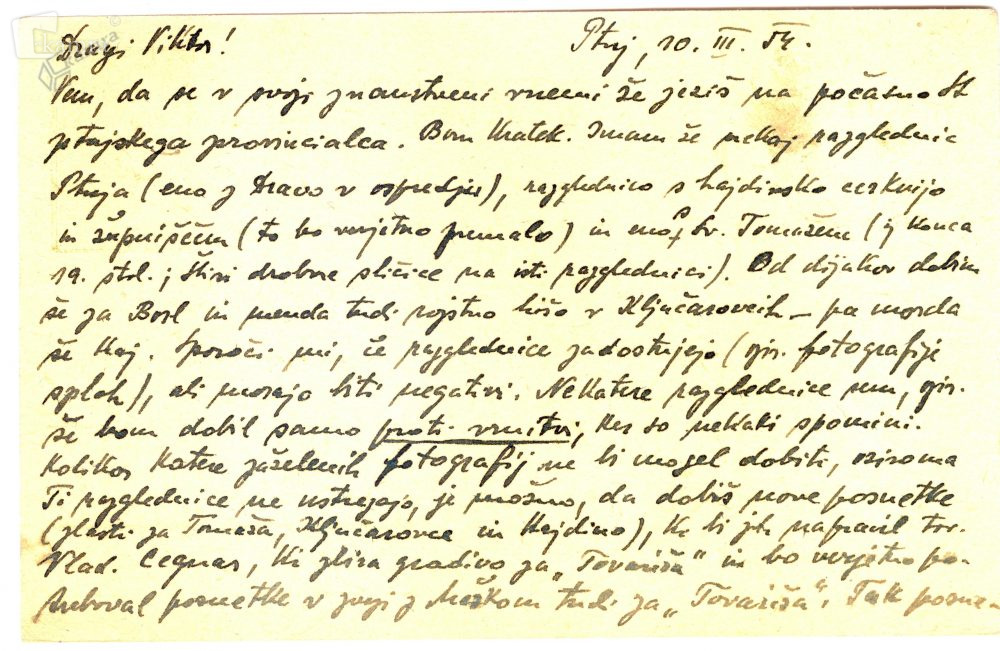 Dragi Viktor!
Ptuj, 10. III. 54.
Vem, da se v svoji znanstveni vnemi že jeziš na počasnost
ptujskega provincialca. Bom kratek. Imam že nekaj razglednic
Ptuja (eno z Dravo v ospredju), razglednico s hajdinsko cerkvijo
in župniščem (to bo verjetno premalo) in eno s Sv. Tomažem (iz konca
19. stol.; štiri drobne sličice na isti razglednici). Od dijakov dobim
še za Borl in menda tudi rojstno hišo v Ključarovcih – pa morda
še kaj. Sporoči mi, če razglednice zadostujejo (ozir. fotografije
sploh), ali morajo biti negativi. Nekatere razglednice mam, ozir.
še bom dobil samo proti vrnitvi, ker so nekaki spomini.
Kolikor katere zaželenih fotografij ne bi mogel dobiti, oziroma
Ti razglednice ne ustrezajo, je možno, da dobiš nove posnetke
(zlasti za Tomaža, Ključarovce in Hajdino), ki bi jih napravil tov.
Vlad. Cegnar, ki zbira gradivo za „Tovariša" in bo verjetno po-
treboval posnetke v zvezi z Meškom tudi za „Tovariša". Tak posne-